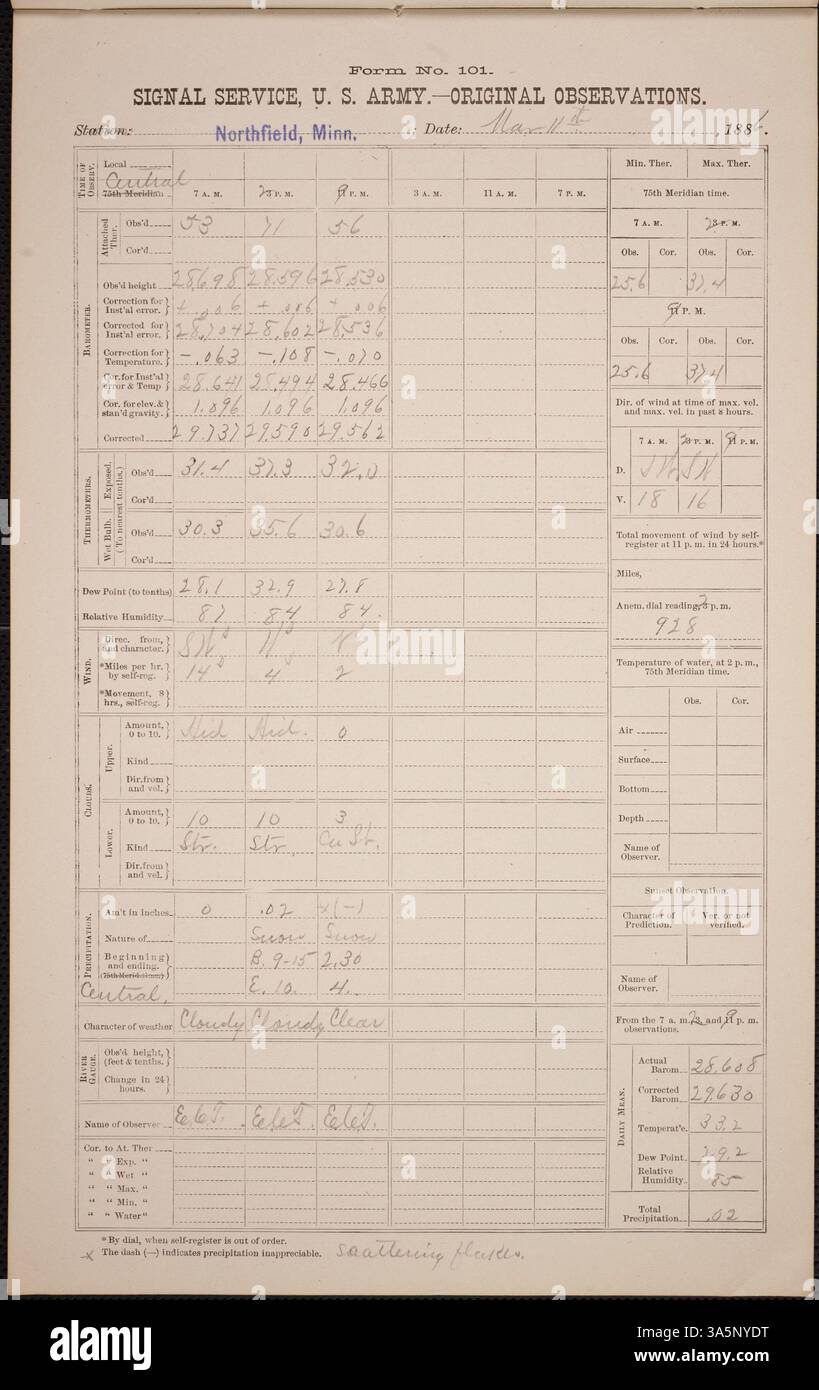 Form No. 101.
SIGNAL SERVICE, U. S. ARMY.—ORIGINAL OBSERVATIONS.
Station: Northfield, Minn. Date: Mar 11th, 188
TIME OF OBSERV.
Local
Central
75th Meridian 7 A. M. 3 P. M. 9 P. M. 3 A. M. 11 A. M. 7 P. M.
BAROMETER.
Attached Ther.
Obs'd 53 71 56
Cor'd
Obs'd height 28.698 28.596 28.530
Correction for Inst'al error. + .006 + .006 + .006
Corrected for Inst'al error. 28.704 28.602 28.536
Correction for Temperature. -.063 -.108 -.070
Cor. for Inst'al error & Temp 28.641 28.494 28.466
Cor. for elev. & stan'd gravity. 1.096 1.096 1.096
Corrected 29.737 29.590 29.562
THERMOMETERS.
Exposed. (To nearest tenths.)
Obs'd 31.4 37.3 32.0
Cor'd
Wet Bulb.
Obs'd 30.3 35.6 30.6
Cor'd
Dew Point (to tenths) 28.1 32.9 27.8
Relative Humidity 87 84 84
WIND.
Direc. from, and character.
*Miles per hr. by self-reg. 14 4 2
*Movement, 8 hrs., self-reg.
CLOUDS.
Upper.
Amount, 0 to 10. Hid Hid. 0
Kind
Dir. from and vel.
Lower.
Amount, 0 to 10. 10 10 3
Kind Str. Str. Cu St.
Dir. from and vel.
PRECIPITATION.
Am't in inches 0 .02 x(—)
Nature of Snow Snow
Beginning and ending. B. 9-15 2.30
(75th Merid. time.)
Central, E. 10. 4.
Character of weather Cloudy Cloudy Clear
RIVER GAUGE.
Obs'd height, (feet & tenths.)
Change in 24 hours.
Name of Observer
Cor. to At. Ther
" " Exp. "
" " Wet "
" " Max. "
" " Min. "
" " Water "
*By dial, when self-register is out of order.
x The dash (—) indicates precipitation inappreciable. Scattering flakes.
Min. Ther. Max. Ther.
75th Meridian time.
7 A. M. 3 P. M.
Obs. Cor. Obs. Cor.
25.6 37.4
9 P. M.
Obs. Cor. Obs. Cor.
25.6 37.4
Dir. of wind at time of max. vel. and max. vel. in past 8 hours.
7 A. M. 3 P. M. 9 P. M.
D.
V. 18 16
Total movement of wind by self-register at 11 p. m. in 24 hours.*
Miles,
Anem. dial reading, 3 p. m.
928
Temperature of water, at 2 p. m., 75th Meridian time.
Obs. Cor.
Air
Surface
Bottom
Depth
Name of Observer.
Sunset Observation.
Character of Prediction. Ver. or not verified.
Name of Observer.
From the 7 a. m. 3, and 9 p. m. observations.
DAILY MEAN.
Actual Barom 28.608
Corrected Barom 29.630
Temperat'e. 33.2
Dew Point 29.2
Relative Humidity 85
Total Precipitation .02
alamy
Image ID: 3A5NYDT
www.alamy.com